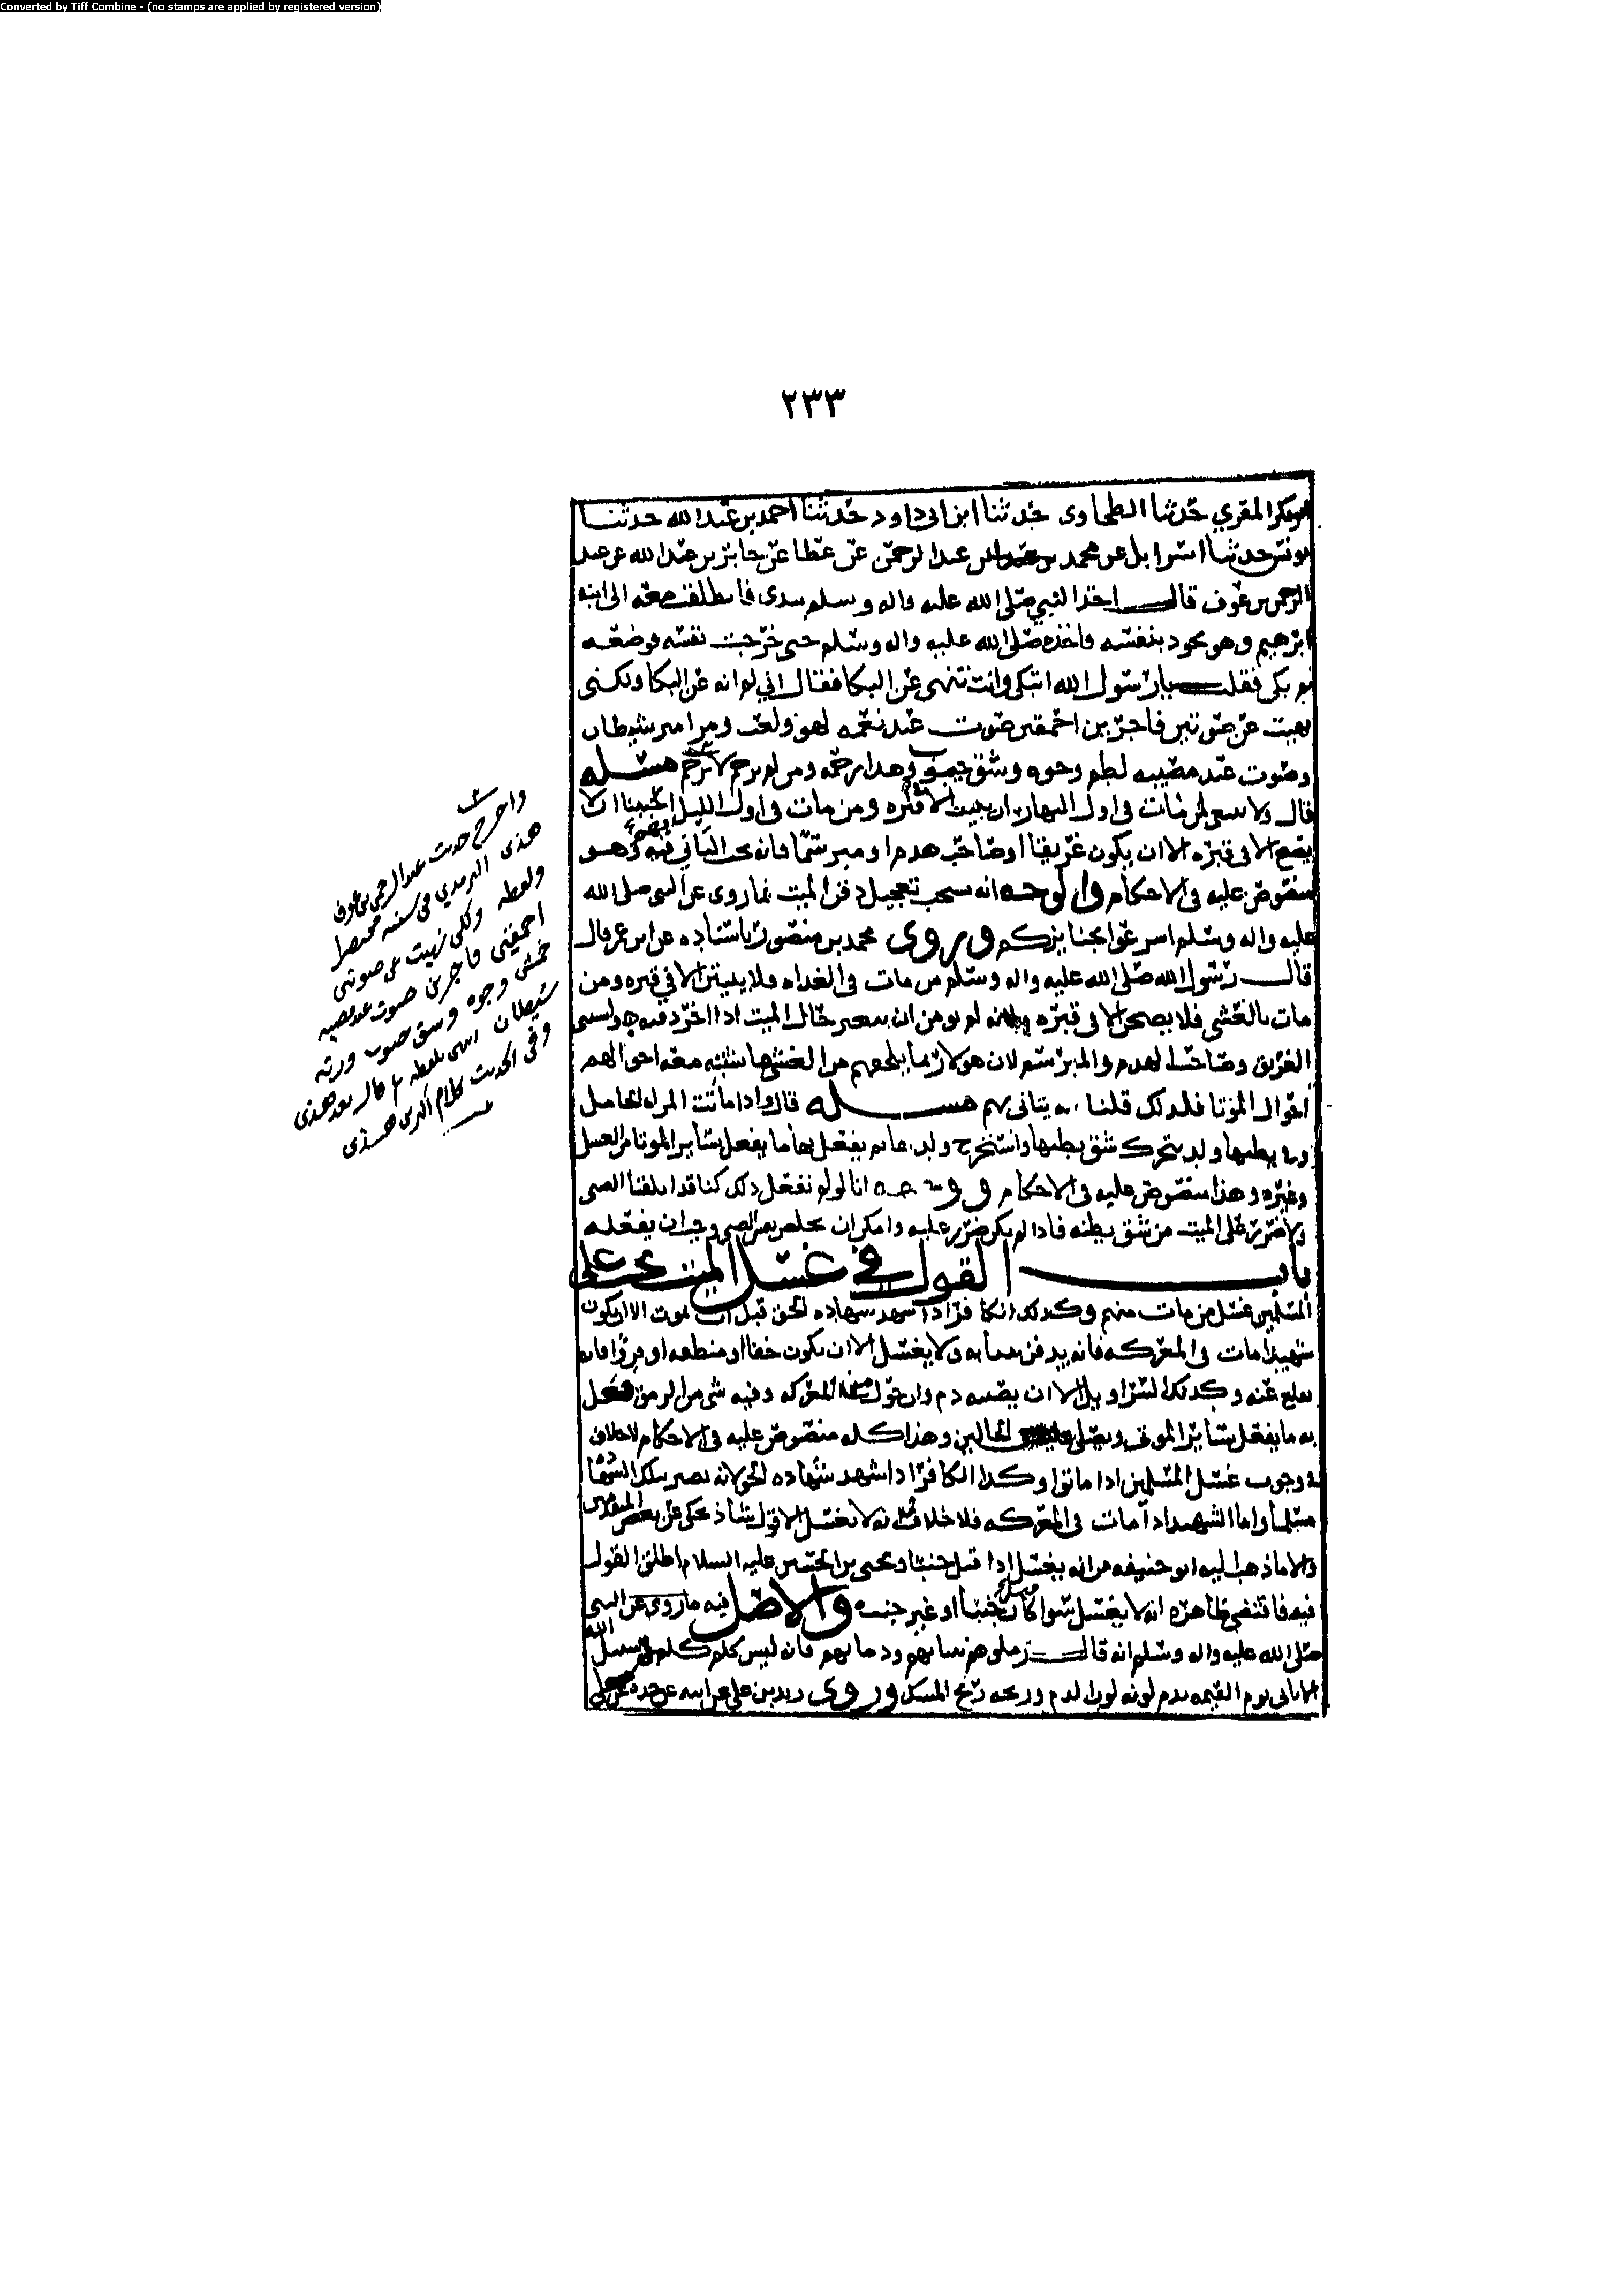 Converted by Tiff Combine - (no stamps are applied by registered version)
٢٣٣
المقري حدثنا الطحاوى حدثنا ابن ابى داود حدثنا احمد بن عبد الله حدثنا
يونس حدثنا اسرايل عن محمد بن عبد الرحمن عن عطا عن جابر بن عبد الله عن عبد
الرحمن بن عوف قال اخذ النبي صلى الله عليه واله وسلم بيدى فانطلقت معه الى ابنه
ابرهيم وهو يجود بنفسه فاخذه صلى الله عليه واله وسلم حتى خرجت نفسه فوضعه
ثم بكى فقلت يا رسول الله اتبكى وانت تنهى عن البكا فقال اني لم انه عن البكا ولكنى
نهيت عن صوتين فاجرين احمقين صوت عند نغمه لهو ولعب ومزامير شيطان
وصوت عند مصيبه لطم وجوه وشق جيوب وهذا رحمه ومن لم يرحم لا يرحم مسله
قال ولا ينبغى لمن مات فى اول النهار ان يبيت الا فى قبره ومن مات فى اول الليل احببنا ان لا
يصبح الا فى قبره الا ان يكون غريقا او صاحب هدم او مبرسما فانه يجب التانى فيه وهو
منصوص عليه فى الاحكام والوجه انه يستحب تعجيل دفن الميت لما روى عن النبى صلى الله
عليه واله وسلم اسرعوا بجنايزكم وروى محمد بن منصور باسناده عن ابن عمر قال
قال رسول الله صلى الله عليه واله وسلم من مات فى الغداه فلا يبيتن الا فى قبره ومن
مات بالعشى فلا يصبحن الا فى قبره ولانه لم يومن ان يتغير حال الميت اذا اخر دفنه واستثنى
الغريق وصاحب الهدم والمبرسم لان هولا ربما يلحقهم من الغشى ما تشتبه معه احوالهم
احوال الموتا فلذلك قلنا انه يتانى بهم مسله قال واذا ماتت المراه الحامل
وفى بطنها ولد يتحرك شق بطنها واستخرج ولدها ثم يفعل بها ما يفعل بساير الموتا من الغسل
وغيره وهذا منصوص عليه فى الاحكام ووجهه انا لو لم نفعل ذلك كنا قد اتلفنا الصبى
ولا ضرر على الميت من شق بطنه فاذا لم يكن ضرر عليه وامكن ان يخلص الصبى وجب ان يفعله
باب القول فى غسل الميت يجب على
المسلمين غسل من مات منهم وكذلك الكافر اذا شهد شهاده الحق قبل الموت الا ان يكون
شهيدا مات فى المعركه فانه يدفن بثيابه ولا يغسل الا ان يكون خفا او منطقه او فروا فانه
يقلع عنه وكذلك السراويل الا ان يصيبه دم وان حول من المعركه وفيه شى من الرمق فعل
به ما يفعل بساير الموتى ويصلى عليه فى الحالين وهذا كله منصوص عليه فى الاحكام لا خلاف
فى وجوب غسل المسلمين اذا ماتوا وكذا الكافر اذا شهد شهاده الحق لانه يصير بتلك الشهاده
مسلما واما الشهيد اذا مات فى المعركه فلا خلاف انه لا يغسل الا قول شاذ يحكى عن بعض المتقدمين
والا ما ذهب اليه ابو حنيفه من انه يغسل اذا قتل جنبا ويحيى بن الحسين عليه السلام اطلق القول
فيه فاقتضى ظاهره انه لا يغسل سوا كان جنبا او غير جنب والاصل فيه ما روى عن النبى
صلى الله عليه واله وسلم انه قال زملوهم بثيابهم ودمايهم فانه ليس كلم كلم فى سبيل الله
الا ياتى يوم القيمه بدم لونه لون الدم وريحه ريح المسك وروى زيد بن على عن ابيه عن جده عن على
واخرج حديث عبد الرحمن بن عوف
هذا الترمذي فى سننه مختصرا
ولفظه ولكن نهيت عن صوتين
احمقين فاجرين صوت عند مصيبه
خمش وجوه وشق جيوب ورنه
شيطان انتهى بلفظه ثم قال بعد هذا
وفى الحديث كلام اكثر من هذا